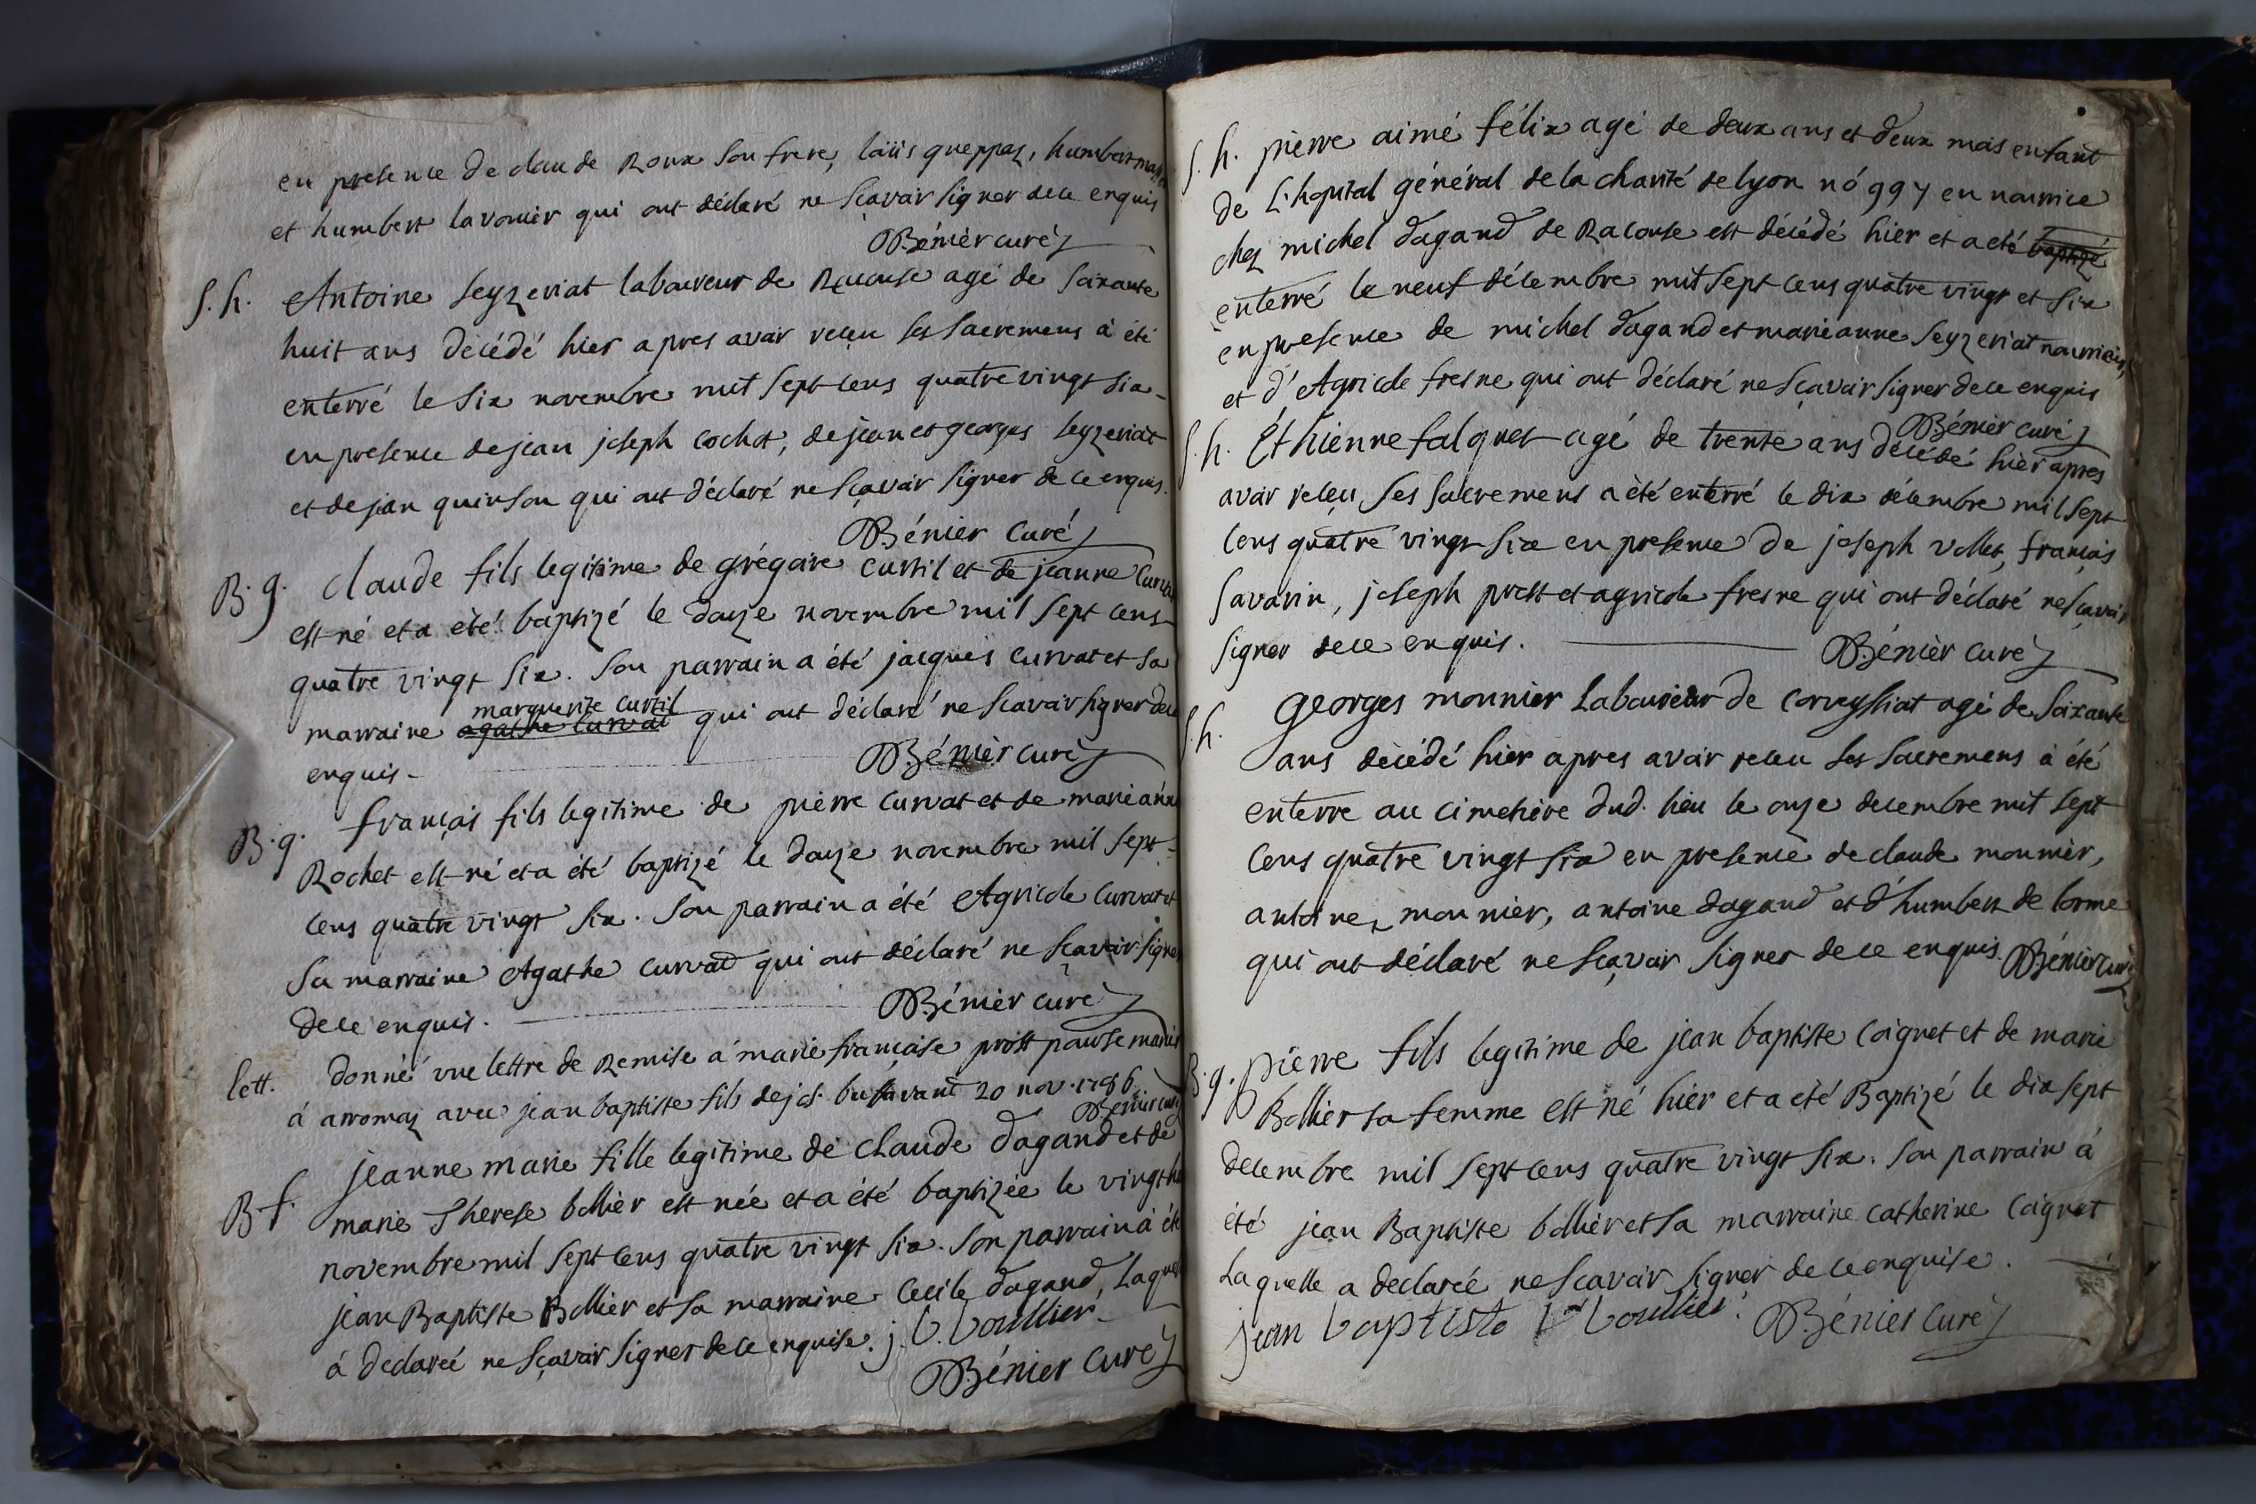 en presence de claude Roux son frere, loüis greppaz, humbert
et humbert lavomier qui ont déclaré ne sçavoir signer de ce enquis
Bémier curé
S. h. Antoine seyzeriat laboureur de Racouse agé de soixante
huit ans décédé hier apres avoir reçeu ses sacremens à été
enterré le six novembre mil sept cens quatre vingt six
en presence de jean joseph cochet, de jean et georges seyzeriat
et de jean quinson qui ont déclaré ne sçavoir signer de ce enquis.
Bénier Curé
B. g. claude fils legitime de grégoire curtil et de jeanne
est né et a été baptizé le douze novembre mil sept cens
quatre vingt six. Son parrain a été jacques curvat et sa
marguerite curtil
marraine agathe curvat qui ont déclaré ne scavoir signer de ce
enquis
Bénier curé
B. g. françois fils legitime de pierre curvat et de marie anne
Rochet est né et a été baptizé le douze novembre mil sept
cens quatre vingt six. Son parrain a été Agricole curvat et
sa marraine Agathe curvat qui ont déclaré ne sçavoir signer
de ce enquis.
Bénier curé
lett. donné une lettre de Remise á marie françoise prost pour se marier
á arromaz avec jean baptiste fils de jos. buffavant 20 nov. 1786
Bénier curé
B f. jeanne marie fille legitime de claude dagand et de
marie Therese bollier est née et a été baptizée le vingt
novembre mil sept cens quatre vingt six. Son parrain à été
jean Baptiste Bollier et sa marraine Cecile dagand, Laquelle
à declareé ne sçavoir signer de ce enquise. j. b. boullier
Bénier curé
S. h. pierre aimé félix agé de deux ans et deux mois enfant
de L'hopital général de la charité de lyon nó 997 en nourrice
chez michel dagand de Racouse est décédé hier et a eté baptizé
enterré le neuf décembre mil sept cens quatre vingt et six
en presence de michel dagand et marie anne seyzeriat nourriciers,
et d'Agricole fresne qui ont déclaré ne sçavoir signer de ce enquis
Bénier curé
S. h. Éthienne falquet agé de trente ans décédé hier apres
avoir reçeu ses sacremens a été enterré le dix décembre mil sept
cens quatre vingt six en presence de joseph vollet, françois
savarin, joseph prost et agricole fresne qui ont déclaré ne sçavoir
signer de ce enquis.
Bénier curé
S. h. georges monnier Laboureur de corveyssiat agé de soixante
ans décédé hier apres avoir receu ses sacremens à été
enterre au cimetiere dud. lieu le onze decembre mil sept
cens quatre vingt six en presence de claude monnier,
antoine monnier, antoine dagand et d'humbert de lorme
qui ont déclaré ne sçavoir signer de ce enquis. Bénier curé
B. g. pierre fils legitime de jean baptiste Coignet et de marie
Bollier sa femme est né hier et a eté Baptizé le dix sept
decembre mil sept cens quatre vingt six. son parrain à
été jean Baptiste bollier et sa marraine catherine Coignet
Laquelle a declareé ne scavoir signer de ce enquise.
jean baptiste boullier
Bénier Curé